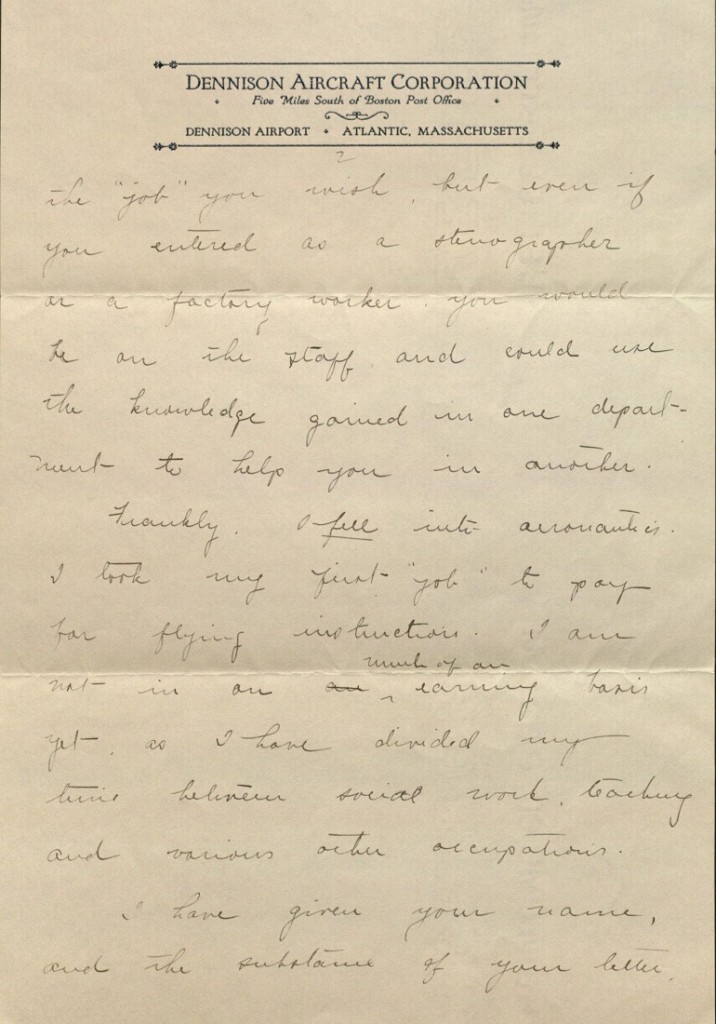 DENNISON AIRCRAFT CORPORATION
Five Miles South of Boston Post Office
DENNISON AIRPORT • ATLANTIC, MASSACHUSETTS
2
the "job" you wish, but even if
you entered as a stenographer
or a factory worker, you would
be on the staff and could use
the knowledge gained in one depart-
ment to help you in another.
Frankly, I fell into aeronautics.
I took my first "job" to pay
for flying instruction. I am
much of an
not in on an earning basis
yet, as I have divided my
time between social work, teaching
and various other occupations.
I have given your name,
and the substance of your letter,